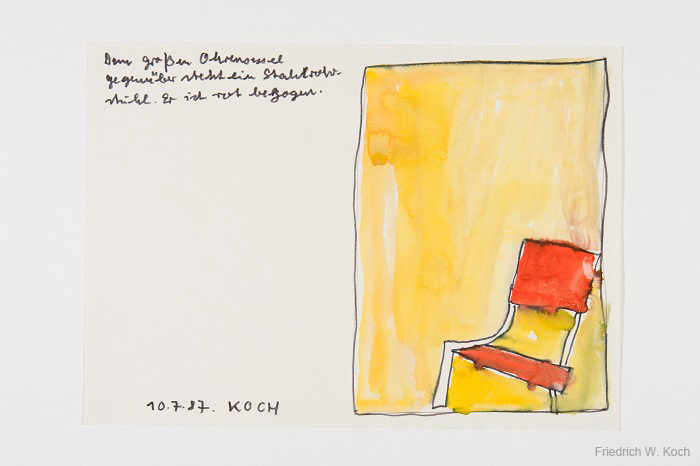 Dem großen Ohrensessel
gegenüber steht ein Stahlrohr-
stuhl. Er ist rot bezogen.
10.7.87. KOCH
Friedrich W. Koch